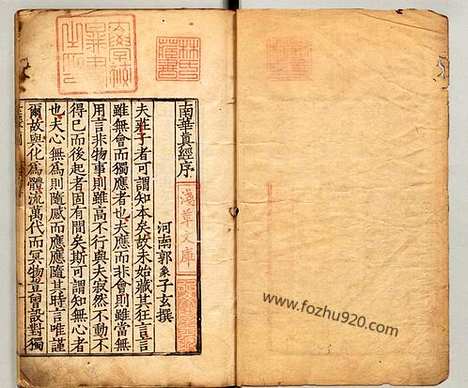 南華真經序
河南郭象子玄撰
夫莊子者可謂知本矣故未始藏其狂言言
雖無會而獨應者也夫應而非會則雖當無
用言非物事則雖高不行與夫寂然不動不
得已而後起者固有間矣斯可謂知無心者
也夫心無為則隨感而應應隨其時言唯謹
爾故與化為體流萬代而冥物豈曾設對獨
淺草文庫
www.fozhu920.com